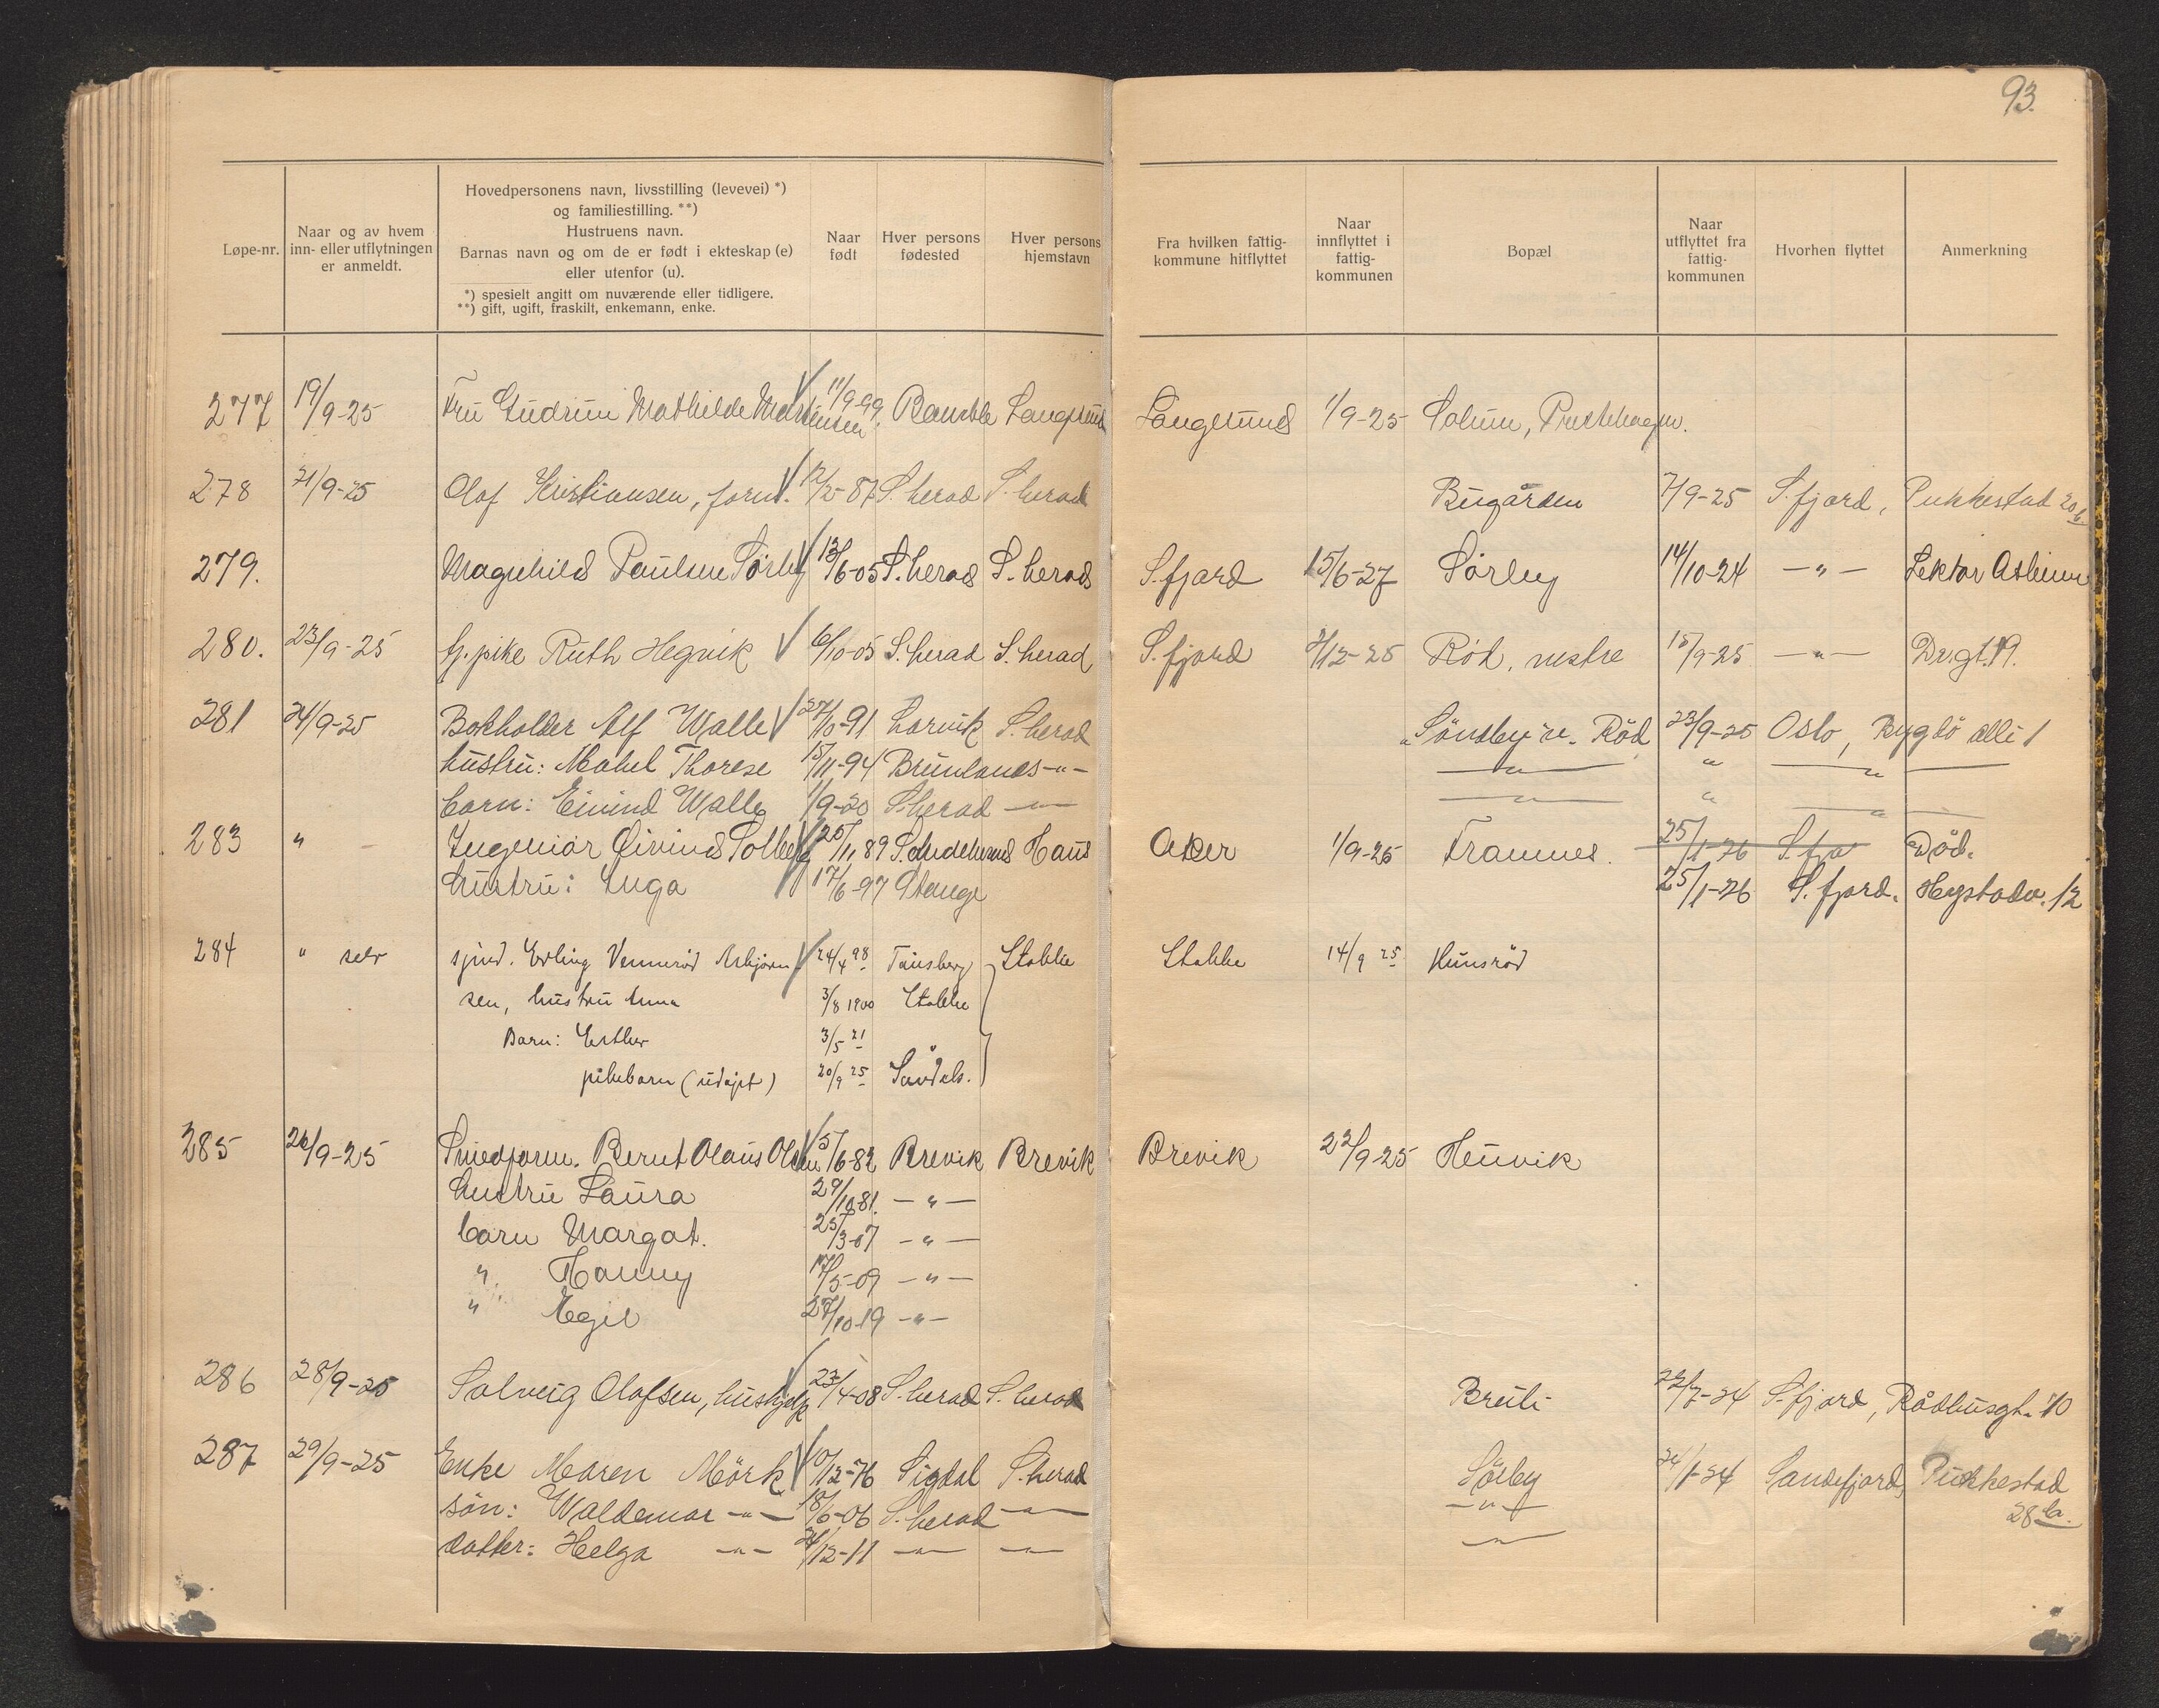 93.
Løpe-nr.
Naar og av hvem
inn- eller utflytningen
er anmeldt.
Hovedpersonens navn, livsstilling (levevei) *)
og familiestilling. **)
Hustruens navn.
Barnas navn og om de er født i ekteskap (e)
eller utenfor (u).
*) spesielt angitt om nuværende eller tidligere.
**) gift, ugift, fraskilt, enkemann, enke.
Naar
født
Hver persons
fødested
Hver persons
hjemstavn
Fra hvilken fattig-
kommune hitflyttet
Naar
innflyttet i
fattig-
kommunen
Bopæl
Naar
utflyttet fra
fattig-
kommunen
Hvorhen flyttet
Anmerkning
277 19/9-25 Fru Gudrun Mathilde Martinsen 11/9-99. Bamble Langesund Langesund 1/9-25 Solum, Prestehagen.
278 21/9-25 Olof Kristiansen, form. 12/2-87 S. herad S. herad Bugården 7/9-25 S. fjord, Pukkestad 20 b
279. Magnhild Paulsen Sørby 13/6-05 S. herad S. herad S. fjord 15/6-27 Sørby 14/10-24 -"- Lektor
280. 23/9-25 hj. pike Ruth Hegnik 6/10-05 S. herad S. herad S. fjord 2/12-25 Röd, nestre 15/9-25 -"- Dr.gt. 19.
281 24/9-25 Bokholder Alf Walle 27/10-91 Larvik S. herad Röd 23/9-25 Oslo, Bygdö allé 1
hustru: Mabel Therese 15/11-94 Brunlanes -"- -"- " -"-
barn: Eivind Walle 1/9-20 S. herad -"- -"- " -"-
283 " Ingeniør Øivind Solberg 25/11 89 Haus Aker 1/9-25 Framnes. 25/1-26 S. fjo Död.
hustru: Inga 17/6-97 Stange 25/1-26 S. fjord. Hystadv. 12
284 " selv sjöd. Erling Vennerød Asbjørn- 24/4 98 Tønsberg Stokke Stokke 14/9 25 Hunsrød
sen, hustru Anna 3/8 1900 Stokke
Barn: Esther 3/5 21 "
pikebarn (udøpt) 20/9 25 Sandeh.
285 26/9-25 Smedform. Bernt Olaus Olsen 5/6-82 Brevik Brevik Brevik 22/9-25 Heuvik
hustru Laura 29/10-81. -"-
barn Margot. 25/3-07 -"-
" Hanny 17/5-09 -"-
" Egil 27/10-19 -"-
286 28/9-25 Solveig Olafsen, hushjelp 23/4-08 S. herad S. herad Breili 22/7-24 S. fjord, Rådhusgt. 10
287 29/9-25 Enke Maren Mörk 10/12-76 Sigdal S. herad Sörby 24/1-24 Sandefjord, Pukkestad
28 b.
sön: Waldemar -"- 18/6-06 S. herad -"- -"-
datter: Helga -"- 24/12-11 -"- -"- -"-